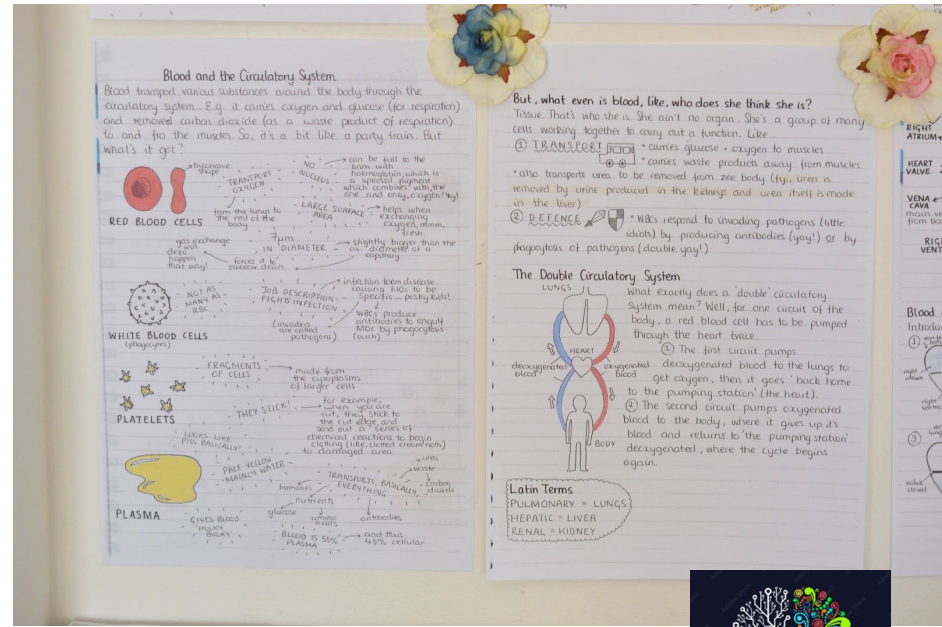 Blood and the Circulatory System
Blood transport various substances around the body through the
circulatory system. E.g. it carries oxygen and glucose (for respiration)
and removed carbon dioxide (as a waste product of respiration)
to and fro the muscles. So, it's a bit like a party train. But
what's it got?
biconcave
shape
TRANSPORT
OXYGEN
from the lungs to
the rest of the
body
NO
NUCLEUS
can be full to the
brim with
haemoglobin, which is
a special pigment
which combines with the
one and only, oxygen! Yay!
LARGE SURFACE
AREA
helps when
exchanging
oxygen, mmm,
fresh.
RED BLOOD CELLS
7µm
IN DIAMETER
slightly bigger than the
av. diameter of a
capillary
forces it to
slooooow down
gas exchange
will
defo
happen
that way!
NOT AS
MANY AS
RBC
JOB DESCRIPTION:
FIGHT INFECTION
infection form disease
causing MOs to be
specific - pesky kids!
(invaders
are called
pathogens)
WBCs produce
antibodies to engulf
MOs by phagocytosis
(ouch)
WHITE BLOOD CELLS
(phagocytes)
FRAGMENTS
OF CELLS
made from
the cytoplasms
of larger cells
PLATELETS
THEY STICK!
for example,
when you are
cut, they stick to
the cut edge, and
send out a series of
chemical reactions to begin
clotting (like, clotted cream? nom)
to damaged area
LOOKS LIKE
PISS BASICALLY!
PALE YELLOW
MAINLY WATER
TRANSPORTS, BASICALLY,
EVERYTHING
urea
waste
carbon
dioxide
hormones
nutrients
glucose
amino
acids
antibodies
PLASMA
GIVES BLOOD
'HULKY
BULKY'
BLOOD IS 55%
PLASMA
and thus
45% cellular
But, what even is blood, like, who does she think she is?
Tissue. That's who she is. She ain't no organ. She's a group of many
cells working together to carry out a function. Like...
① TRANSPORT
• carries glucose + oxygen to muscles
• carries waste products away from muscles
• also transports urea to be removed from zee body (fyi, urea is
removed by urine produced in the kidneys and urea itself is made
in the liver)
② DEFENCE
• WBCs respond to invading pathogens (little
idiots) by producing antibodies (yay!) or by
phagocytosis of pathogens (double yay!)
The Double Circulatory System
LUNGS
HEART
deoxygenated
blood
oxygenated
blood
BODY
What exactly does a 'double' circulatory
system mean? Well, for one circuit of the
body, a red blood cell has to be pumped
through the heart twice.
① The first circuit pumps
deoxygenated blood to the lungs to
get oxygen, then it goes 'back home
to the pumping station' (the heart).
② The second circuit pumps oxygenated
blood to the body, where it gives up it's
blood and returns to 'the pumping station'
deoxygenated, where the cycle begins
again.
Latin Terms
PULMONARY = LUNGS
HEPATIC = LIVER
RENAL = KIDNEY
RIGHT
ATRIUM
HEART
VALVE
VENA
CAVA
main
from
RIGHT
VENT
Blood
Introdu
①
③
valve
closed